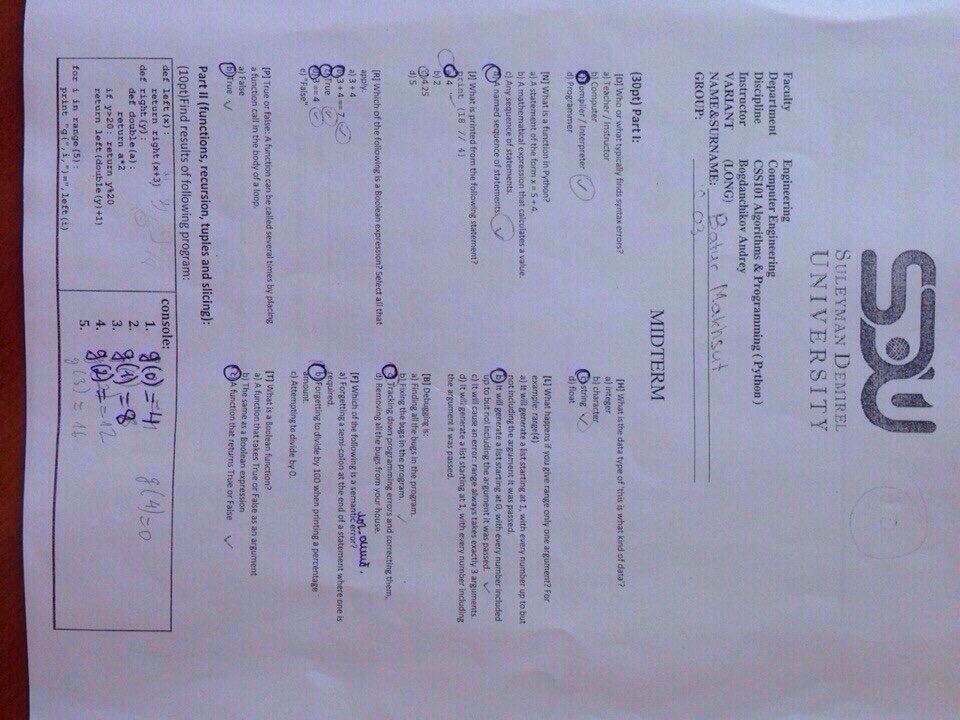 SDU
SULEYMAN DEMIREL
UNIVERSITY
Faculty Engineering
Department Computer Engineering
Discipline CSS101 Algorithms & Programming ( Python )
Instructor Bogdanchikov Andrey
VARIANT (LONG)
NAME&SURNAME: Batyr Makhsut
GROUP: 03
MIDTERM
(30pt) Part I:
[D] Who or what typically finds syntax errors?
a) Teacher / Instructor
b) Computer
c) Compiler / Interpreter
d) Programmer
[N] What is a function in Python?
a) A statement of the form x = 5 + 4.
b) A mathematical expression that calculates a value.
c) Any sequence of statements.
d) A named sequence of statements.
[J] What is printed from the following statement?
print (18 // 4)
a) 4
b) 2
c) 4.25
d) 5
[R] Which of the following is a Boolean expression? Select all that
apply.
a) 3 + 4
b) 3 + 4 == 7
c) True
d) 3 == 4
e) "False"
[P] True or false: A function can be called several times by placing
a function call in the body of a loop.
a) False
b) True
[H] What is the data type of 'this is what kind of data'?
a) integer
b) character
c) string
d) float
[L] What happens if you give range only one argument? For
example: range(4)
a) It will generate a list starting at 1, with every number up to but
not including the argument it was passed.
b) It will generate a list starting at 0, with every number included
up to but not including the argument it was passed.
c) It will cause an error: range always takes exactly 3 arguments.
d) It will generate a list starting at 1, with every number including
the argument it was passed.
[B] Debugging is:
a) Finding all the bugs in the program.
b) Fixing the bugs in the program.
c) Tracking down programming errors and correcting them.
d) Removing all the bugs from your house.
[F] Which of the following is a semantic error?
a) Forgetting a semi-colon at the end of a statement where one is
required.
b) Forgetting to divide by 100 when printing a percentage
amount.
c) Attempting to divide by 0.
[T] What is a Boolean function?
a) A function that takes True or False as an argument
b) The same as a Boolean expression
c) A function that returns True or False
Part II (functions, recursion, tuples and slicing):
(10pt)Find results of following program:
def left(x):
return right(x+3)
def right(y):
def double(a):
return a*2
if y>20: return y%20
return left(double(y)+1)
for i in range(5):
print "g(",i,")=",left(i)
console:
1. g(0)=4
2. g(1)=8
3. g(2)=12
4. g(3)=16
5.
g(4)=0